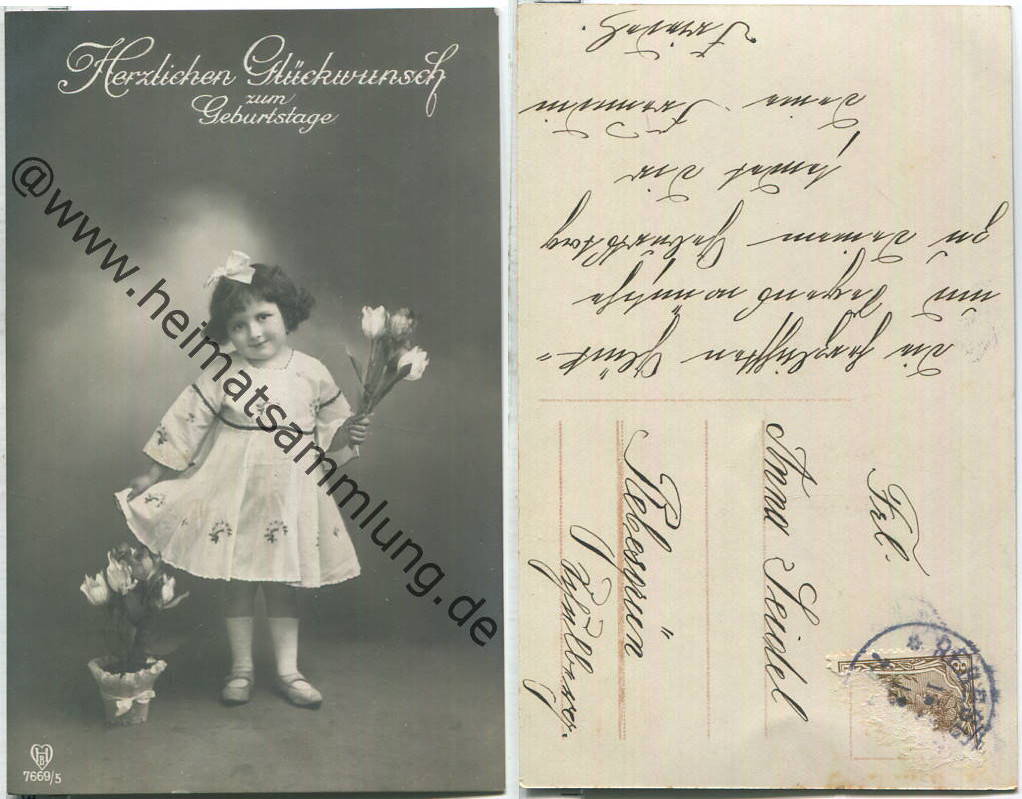 Herzlichen Glückwunsch
zum
Geburtstage
@www.heimatsammlung.de
HB
7669/5
Die herzlichsten Glück-
und Segenswünsche
zu Deinem Geburtstag
sendet Dir
Deine Freundin
Frl.
Anna Seidel
Schulberg.